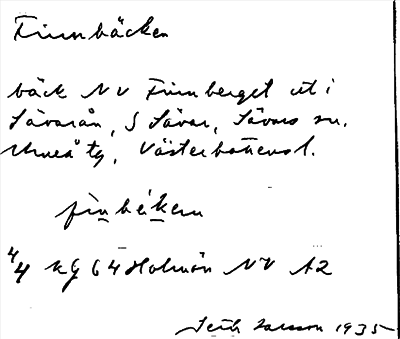 Finnbäcken
bäck NV Finnberget ut i
Sävarån, S Sävar, Sävars sn.
Umeå tg, Västerbottens l.
fìnbéken
4/4 kg 64 Holmön NV A2
Larsson 1935